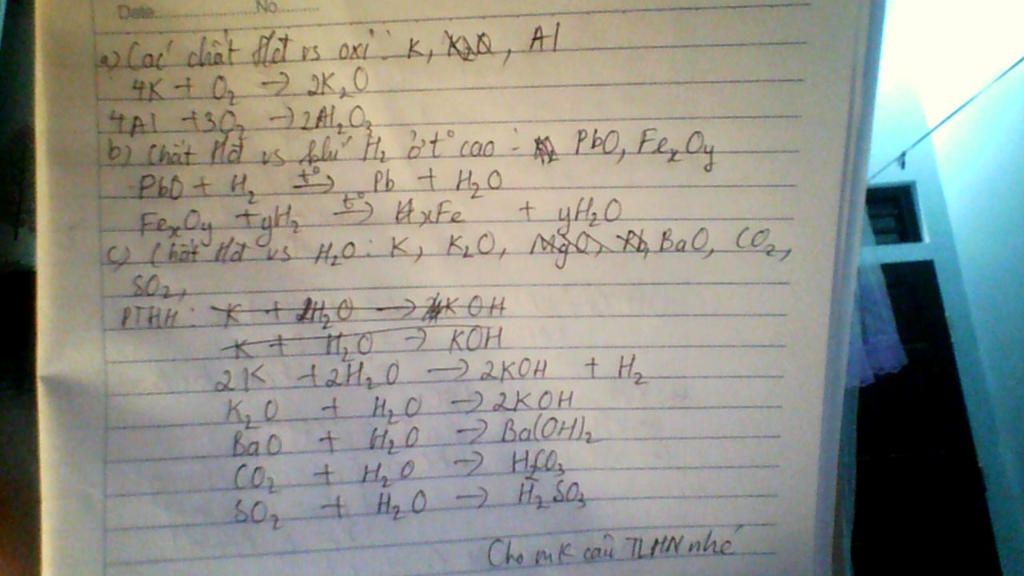 Date............ No..........
a) Các chất t/d vs oxi : K, Al
4K + O₂ → 2K₂O
4Al + 3O₂ → 2Al₂O₃
b) Chất t/d vs khử H₂ ở t° cao : PbO, FexOy
PbO + H₂ t°→ Pb + H₂O
FexOy + yH₂ t°→ xFe + yH₂O
c) Chất t/d vs H₂O : K, K₂O, MgO, BaO, CO₂,
SO₂,
PTHH : K + H₂O → KOH
K + H₂O → KOH
2K + 2H₂O → 2KOH + H₂
K₂O + H₂O → 2KOH
BaO + H₂O → Ba(OH)₂
CO₂ + H₂O → H₂CO₃
SO₂ + H₂O → H₂SO₃
Cho mk câu TLHN nhé